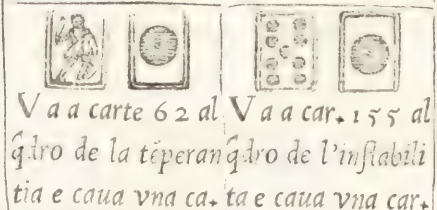 Va a carte 62 al
q̃dro de la tẽperan
tia e caua vna ca.
Va a car. 155 al
q̃dro de l'instabili
ta e caua vna car.